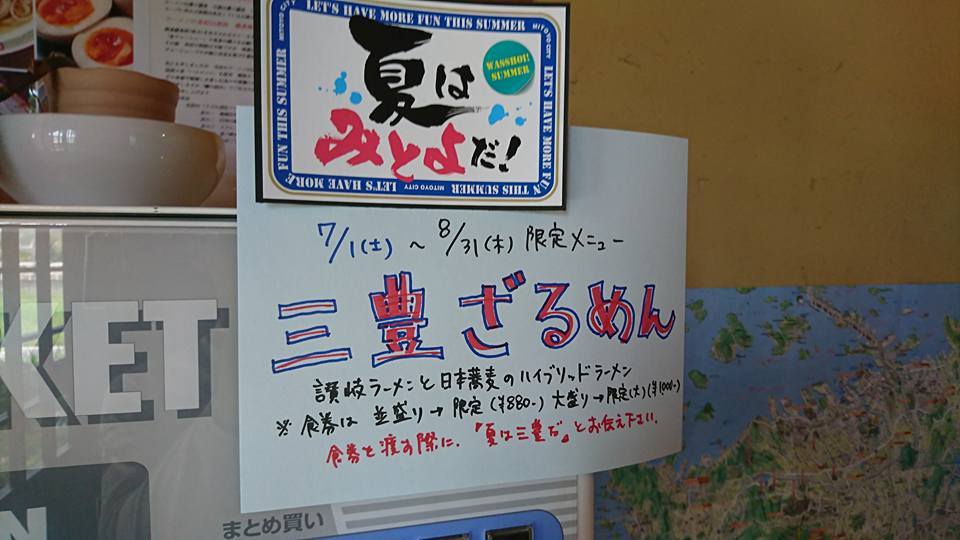 LET'S HAVE MORE FUN THIS SUMMER
MITOYO CITY
LET'S HAVE MORE FUN THIS SUMMER
MITOYO CITY
LET'S HAVE MORE FUN THIS SUMMER
MITOYO CITY
WASSHOI!
SUMMER
夏は
みとよだ!
7/1(土) ~ 8/31(木) 限定メニュー
三豊ざるめん
讃岐ラーメンと日本蕎麦のハイブリッドラーメン
※食券は 並盛り→限定(¥880-) 大盛り→限定(大)(¥1,000-)
食券を渡す際に、「夏は三豊だ」とお伝え下さい。
KET
N
まとめ買い